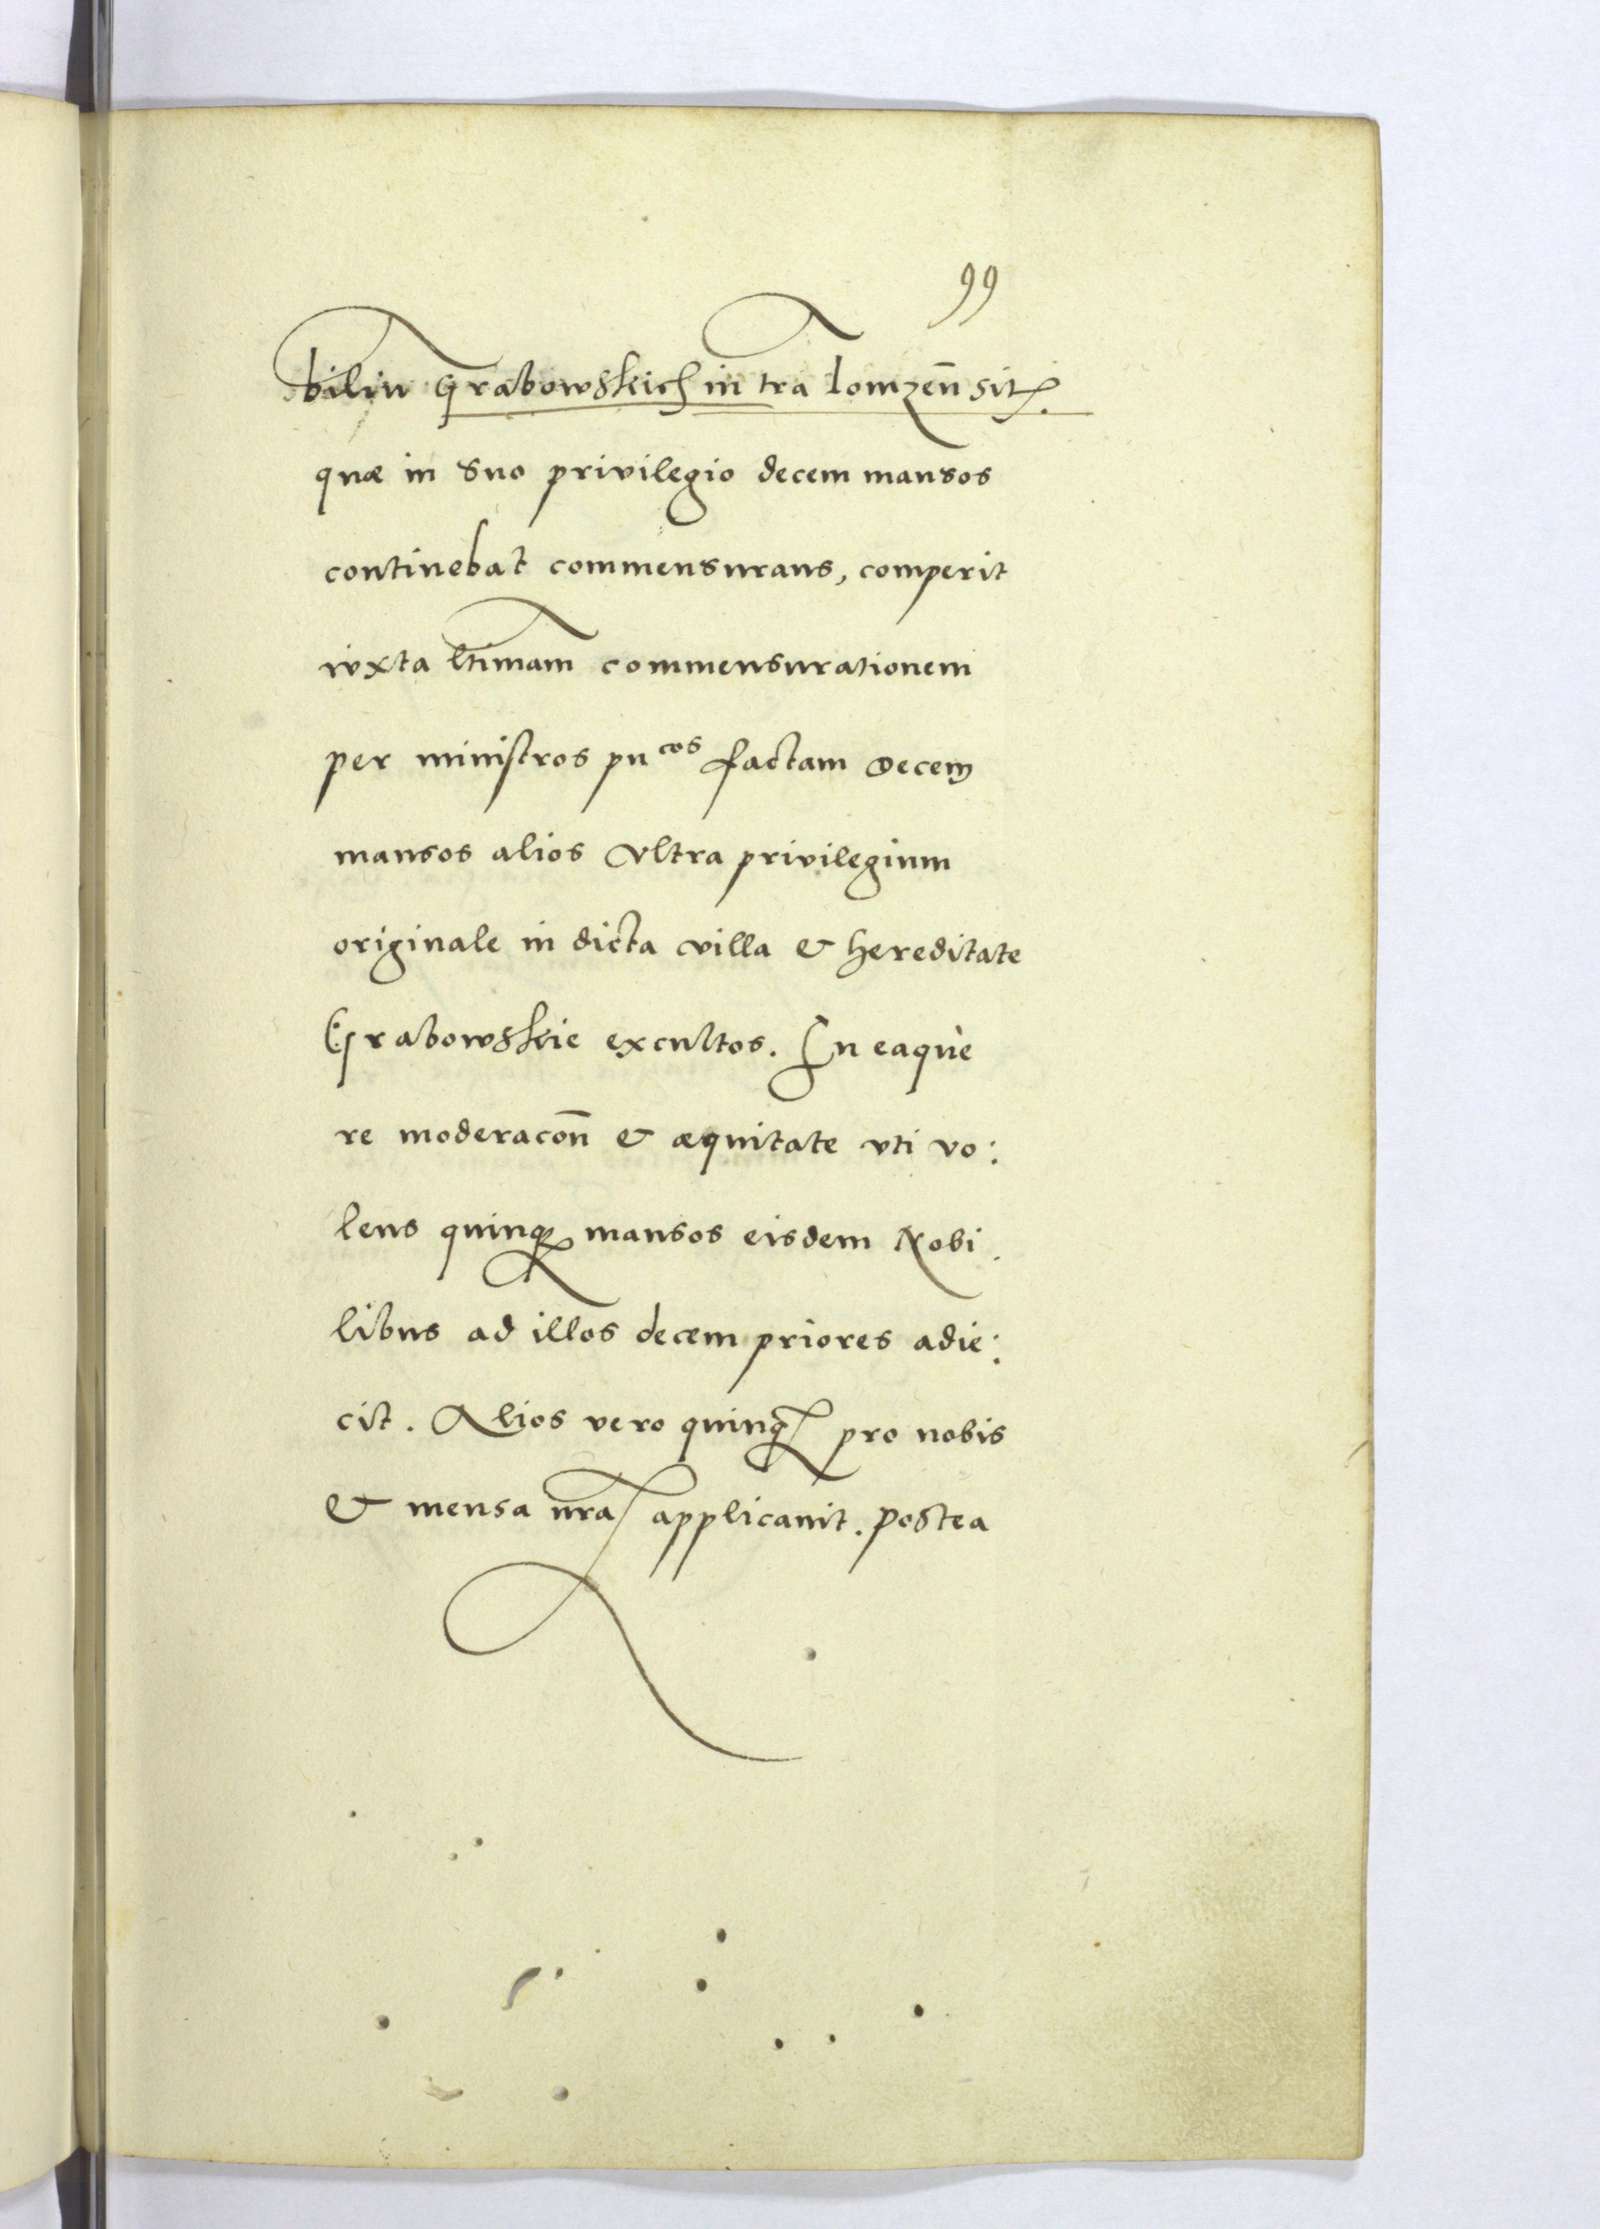 99
biliu Grabowskich in tra Lomzen̄ sit.
quæ in suo privilegio decem mansos
continebat commensurans, comperit
iuxta ltimam commensurationem
per ministros pu^cos factam decem
mansos alios vltra privilegium
originale in dicta villa & hereditate
Grabowskie excultos. In eaque
re moderacon̄ & æquitate vti vo:
lens quinq mansos eisdem Nobi
libus ad illos decem priores adie:
cit. Alios vero quinq pro nobis
& mensa nra applicauit. Postea